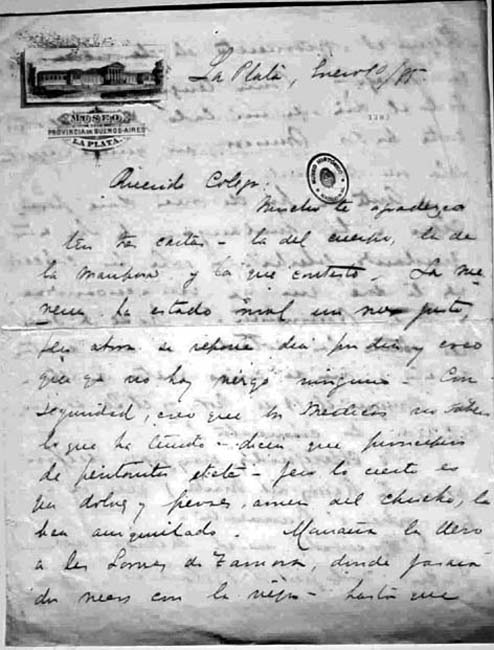 MUSEO
PROVINCIA DE BUENOS-AIRES
LA PLATA
La Plata, Enero
Querido Colega:
Mucho te agradezco
tus tres cartas – la del cuerpo, la de
la mariposa y la que contesto – La
ha estado mal un mes justo,
pero ahora se repone dia por dia y creo
que ya no hay ninguno – Con
seguridad, creo que los Medicos no saben
lo que ha tenido – dicen que principios
de peritonitis – pero lo cierto es
que dolores y fiebres, amen del chucho, la
han aniquilado. Mañana la llevo
a las Lomas de Zamora, donde pasará
dos meses con la vieja – hasta que